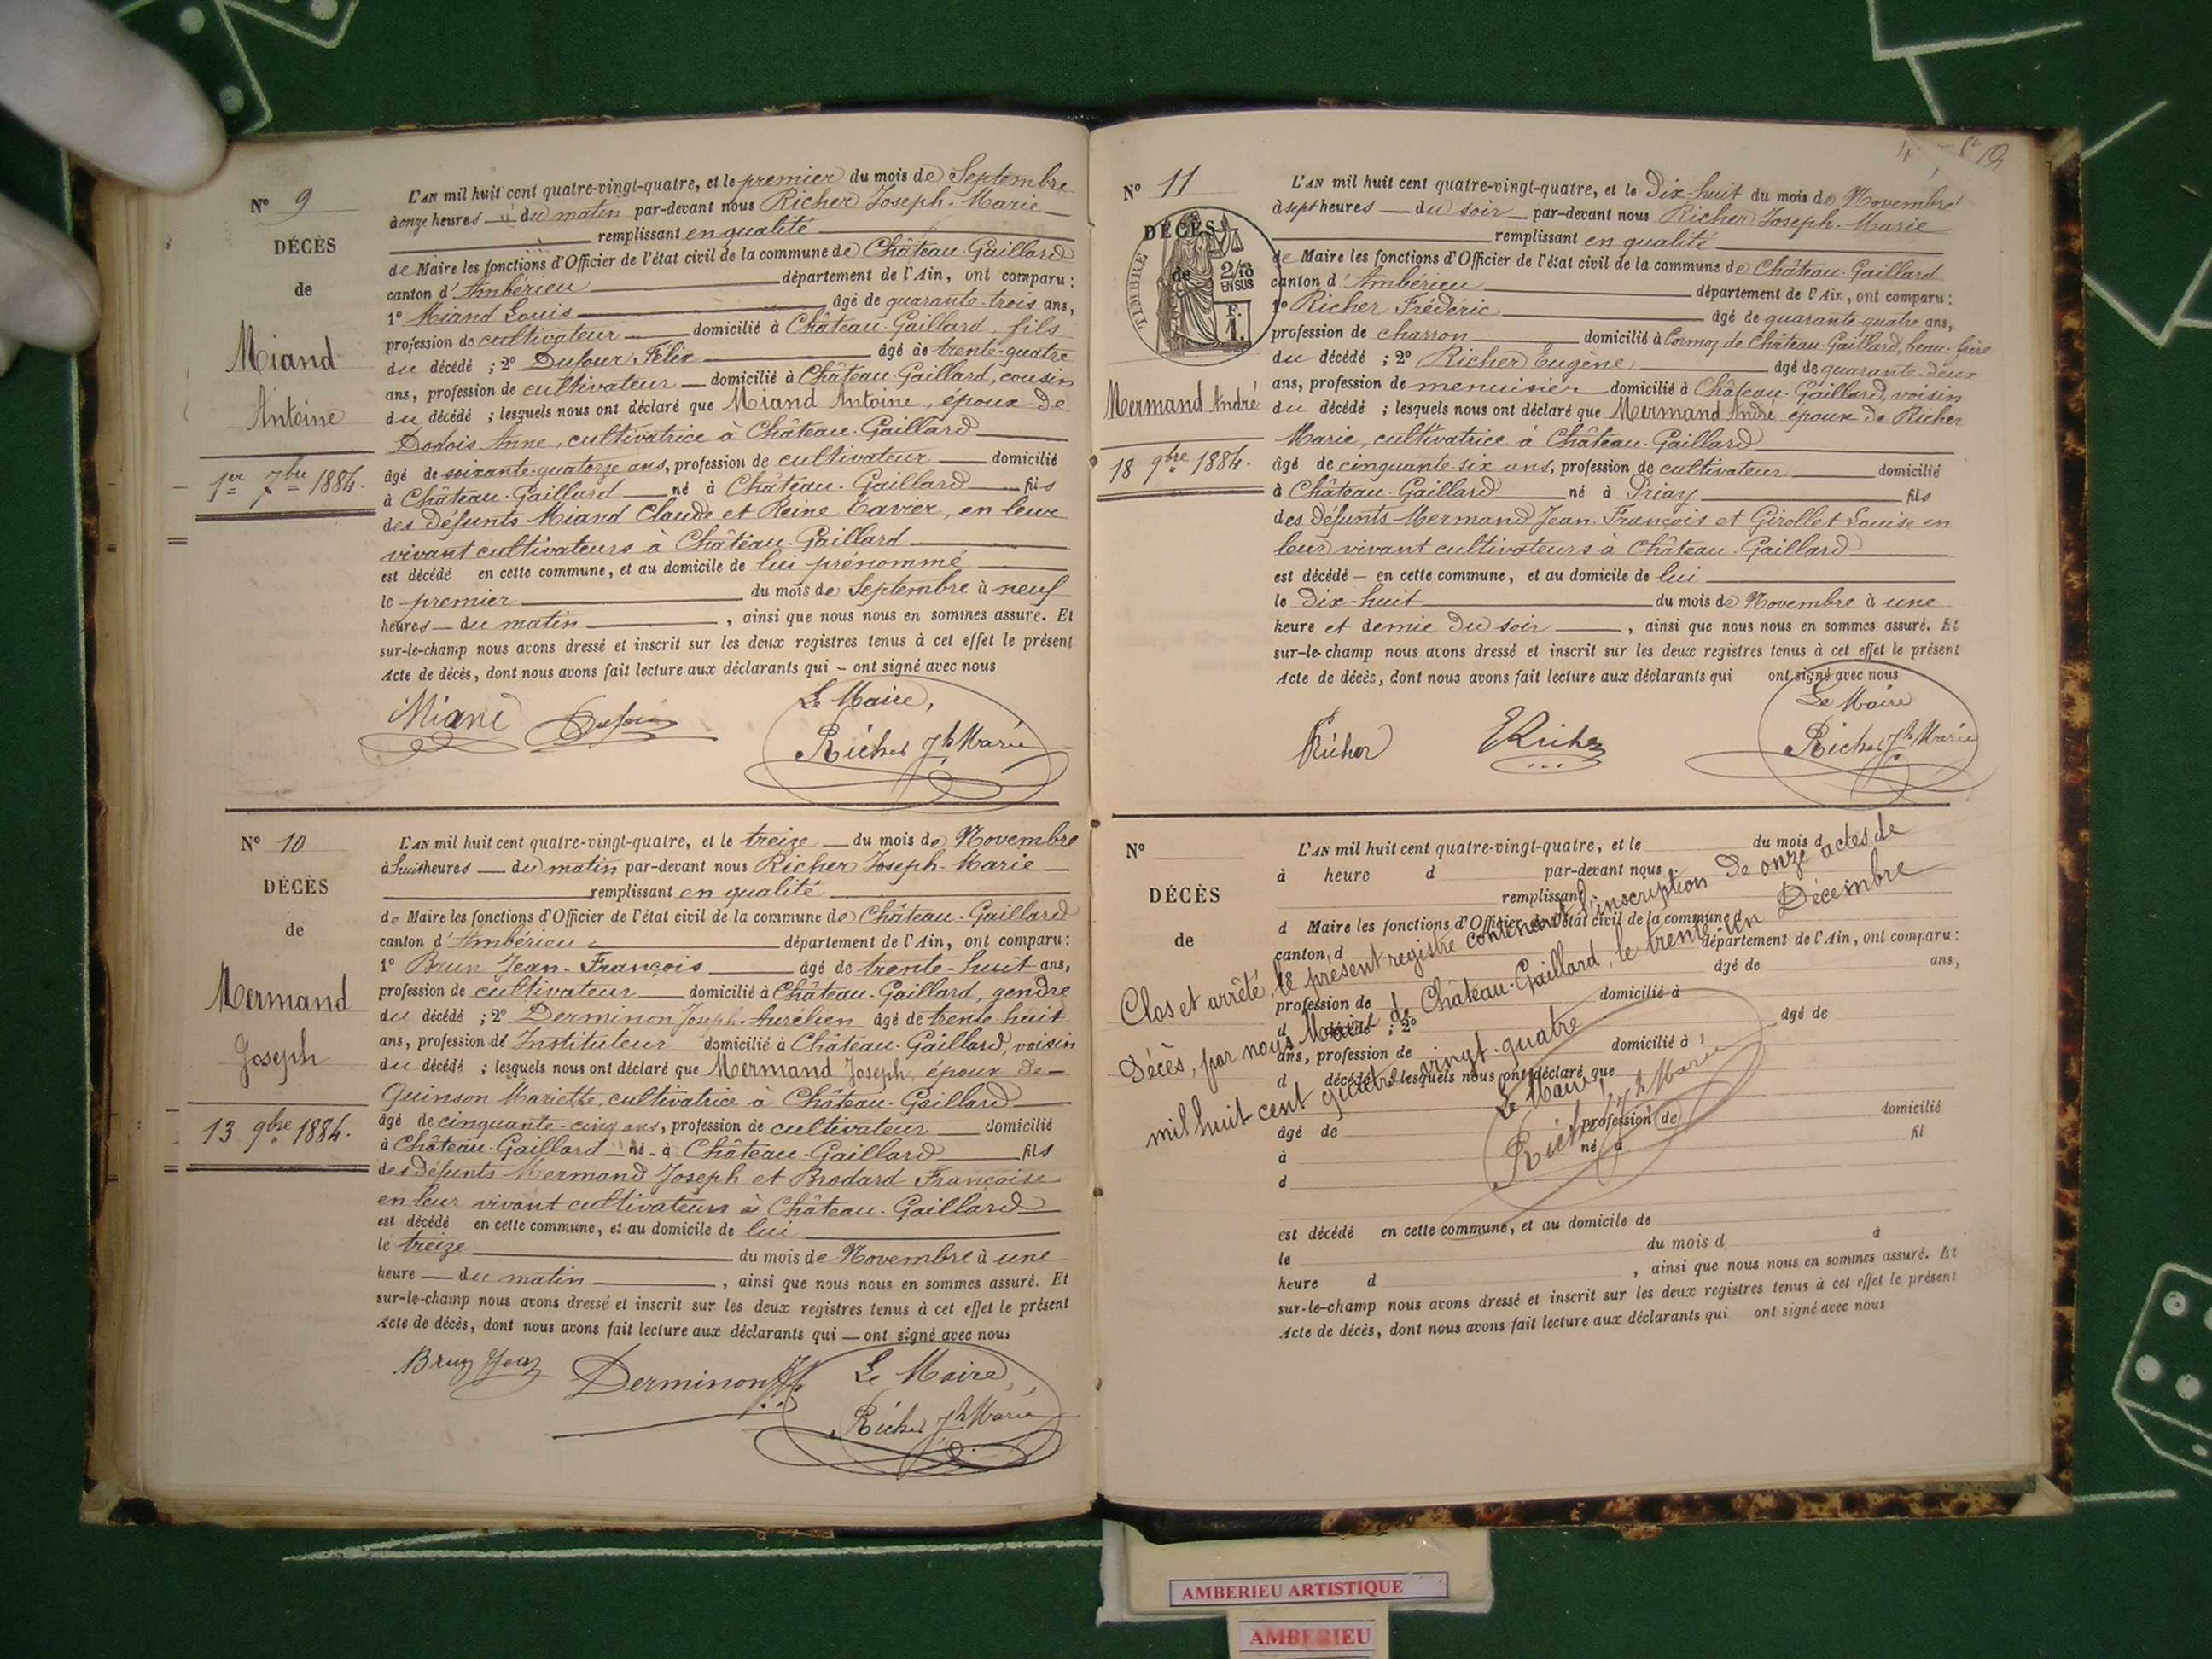 N° 9
DÉCÈS
de
Miand
Antoine
1er 7bre 1884.
L'AN mil huit cent quatre-vingt-quatre, et le premier du mois de Septembre
à onze heures du matin par-devant nous Richer Joseph-Marie
remplissant en qualité
de Maire les fonctions d'Officier de l'état civil de la commune de Château-Gaillard
canton d'Ambérieu département de l'Ain, ont comparu :
1° Miand Louis âgé de quarante-trois ans,
profession de cultivateur domicilié à Château-Gaillard, fils
du décédé ; 2° Dufour Félix âgé de trente-quatre
ans, profession de cultivateur domicilié à Château-Gaillard, cousin
du décédé ; lesquels nous ont déclaré que Miand Antoine, époux de
Dodois Anne, cultivatrice à Château-Gaillard
âgé de soixante-quatorze ans, profession de cultivateur domicilié
à Château-Gaillard né à Château-Gaillard fils
des défunts Miand Claude et Reine Xavier, en leur
vivant cultivateurs à Château-Gaillard
est décédé en cette commune, et au domicile de lui prénommé
le premier du mois de Septembre à neuf
heures du matin, ainsi que nous nous en sommes assuré. Et
sur-le-champ nous avons dressé et inscrit sur les deux registres tenus à cet effet le présent
Acte de décès, dont nous avons fait lecture aux déclarants qui ont signé avec nous
Le Maire,
Miand Dufour Richer Jh Marie
N° 10
DÉCÈS
de
Mermand
Joseph
13 9bre 1884.
L'AN mil huit cent quatre-vingt-quatre, et le treize du mois de Novembre
à huit heures du matin par-devant nous Richer Joseph-Marie
remplissant en qualité
de Maire les fonctions d'Officier de l'état civil de la commune de Château-Gaillard
canton d'Ambérieu département de l'Ain, ont comparu :
1° Brun Jean-François âgé de trente-huit ans,
profession de cultivateur domicilié à Château-Gaillard, gendre
du décédé ; 2° Derminon Joseph-Aurélien âgé de trente huit
ans, profession de Instituteur domicilié à Château-Gaillard, voisin
du décédé ; lesquels nous ont déclaré que Mermand Joseph, époux de
Quinson Mariette, cultivatrice à Château-Gaillard
âgé de cinquante-cinq ans, profession de cultivateur domicilié
à Château-Gaillard né à Château-Gaillard fils
des défunts Mermand Joseph et Brodard Françoise
en leur vivant cultivateurs à Château-Gaillard
est décédé en cette commune, et au domicile de lui
le treize du mois de Novembre à une
heure du matin, ainsi que nous nous en sommes assuré. Et
sur-le-champ nous avons dressé et inscrit sur les deux registres tenus à cet effet le présent
Acte de décès, dont nous avons fait lecture aux déclarants qui ont signé avec nous
Brun Jean Derminon Le Maire,
Richer Jh Marie
N° 11
DÉCÈS
de
TIMBRE
2/10
EN SUS
F.
1.
Mermand André
18 9bre 1884.
L'AN mil huit cent quatre-vingt-quatre, et le Dix-huit du mois de Novembre
à sept heures du soir par-devant nous Richer Joseph-Marie
remplissant en qualité
de Maire les fonctions d'Officier de l'état civil de la commune de Château-Gaillard
canton d'Ambérieu département de l'Ain, ont comparu :
1° Richer Frédéric âgé de quarante-quatre ans,
profession de charron domicilié à Cormoz de Château-Gaillard, beau-frère
du décédé ; 2° Richer Eugène âgé de quarante-deux
ans, profession de menuisier domicilié à Château-Gaillard, voisin
du décédé ; lesquels nous ont déclaré que Mermand André époux de Richer
Marie, cultivatrice à Château-Gaillard
âgé de cinquante-six ans, profession de cultivateur domicilié
à Château-Gaillard né à Priay fils
des défunts Mermand Jean-François et Girollet Louise en
leur vivant cultivateurs à Château-Gaillard
est décédé en cette commune, et au domicile de lui
le Dix-huit du mois de Novembre à une
heure et demie du soir, ainsi que nous nous en sommes assuré. Et
sur-le-champ nous avons dressé et inscrit sur les deux registres tenus à cet effet le présent
Acte de décès, dont nous avons fait lecture aux déclarants qui ont signé avec nous
Le Maire
Richer E Richer Richer Jh Marie
N°
DÉCÈS
de
L'AN mil huit cent quatre-vingt-quatre, et le du mois d
à heure d par-devant nous
remplissant
d Maire les fonctions d'Officier de l'état civil de la commune d
canton d département de l'Ain, ont comparu :
âgé de ans,
profession de domicilié à
d décédé ; 2° âgé de
ans, profession de domicilié à
d décédé ; lesquels nous ont déclaré que
âgé de , profession de domicilié
à né à fil
d
est décédé en cette commune, et au domicile de
le du mois d à
heure d , ainsi que nous nous en sommes assuré. Et
sur-le-champ nous avons dressé et inscrit sur les deux registres tenus à cet effet le présent
Acte de décès, dont nous avons fait lecture aux déclarants qui ont signé avec nous
Clos et arrêté, le présent registre contenant l'inscription de onze actes de
Décès, par nous Maire de Château-Gaillard, le trente-un Décembre
mil huit cent quatre-vingt-quatre
Le Maire,
Richer Jh Marie
AMBERIEU ARTISTIQUE
AMBERIEU